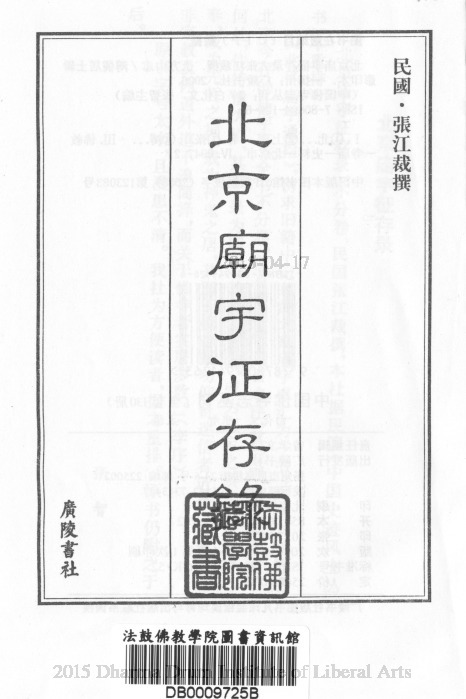 民國·張江裁撰
北京廟宇征存錄
廣陵書社
法鼓佛教學院藏書
2015-04-17
法鼓佛教學院圖書資訊館
DB0009725B
2015 Dharma Drum Institute of Liberal Arts